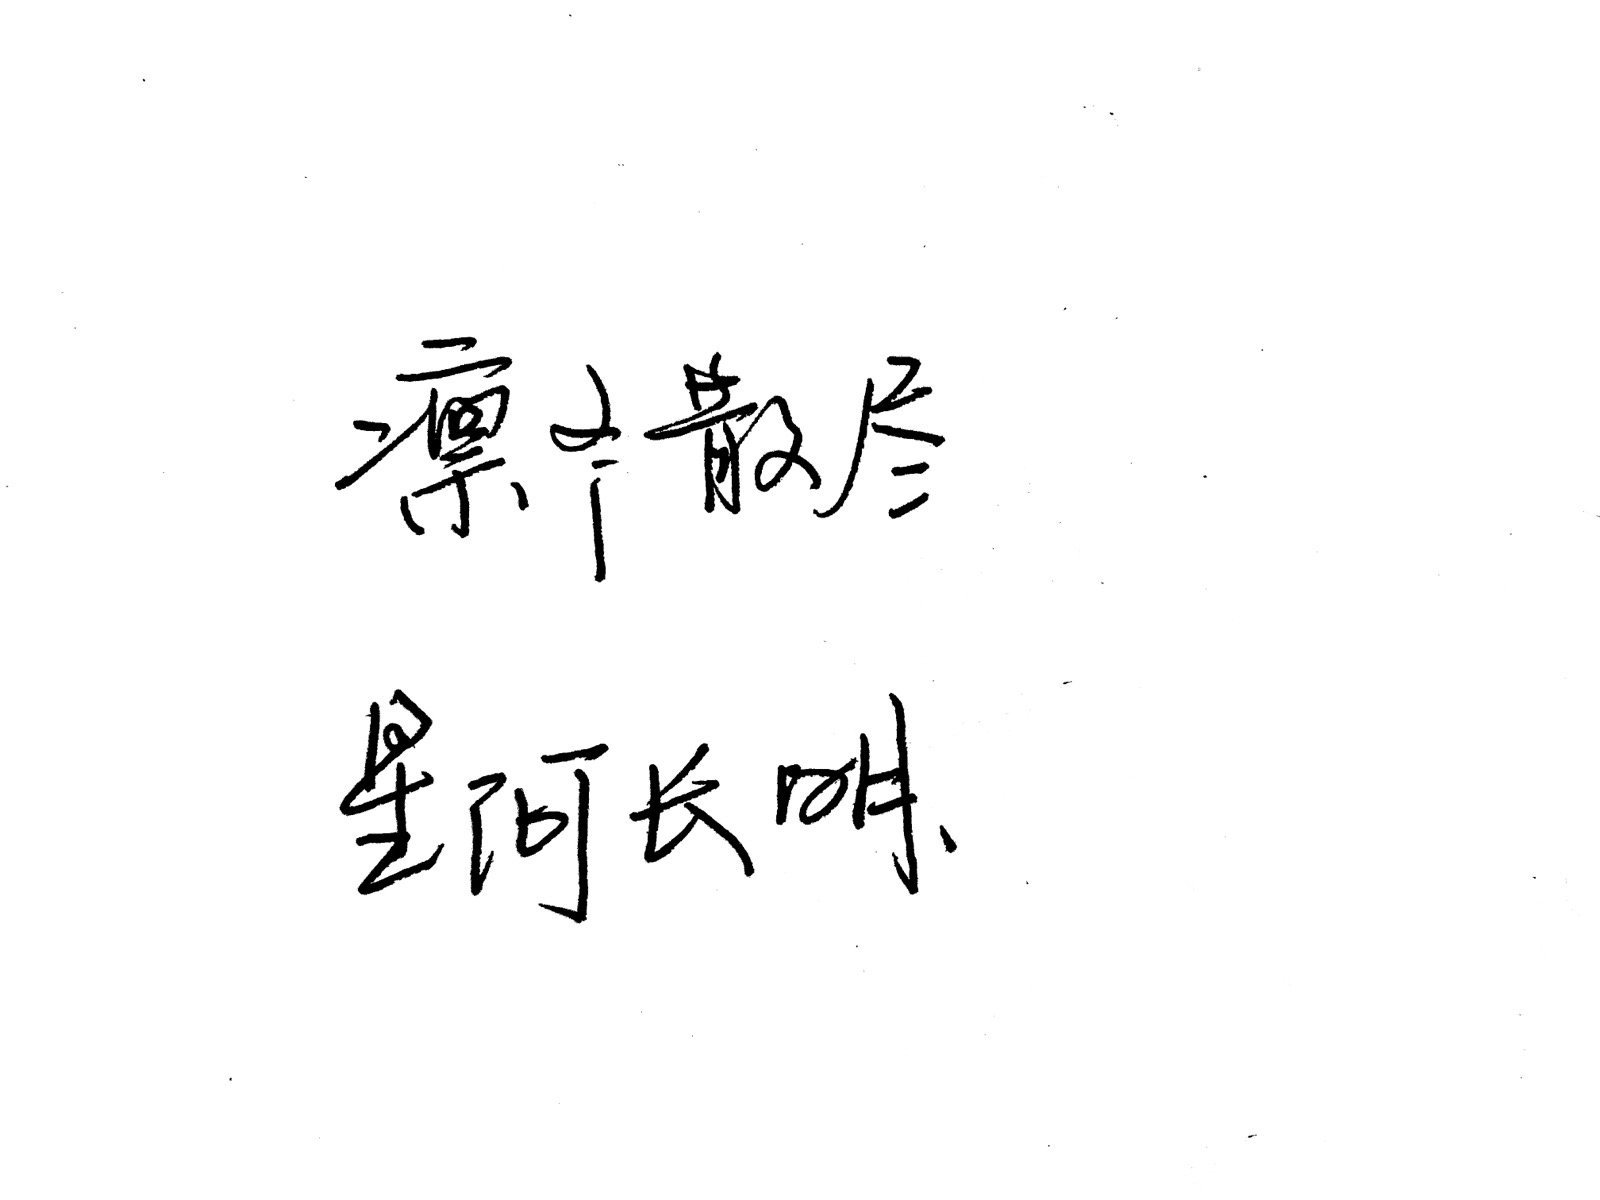 凛冬散尽
星河长明、